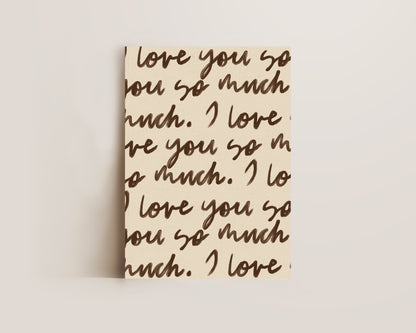 I love you so
you so much
much. I love
ve you so m
o much. I lo
I love you so
you so much
much. I love